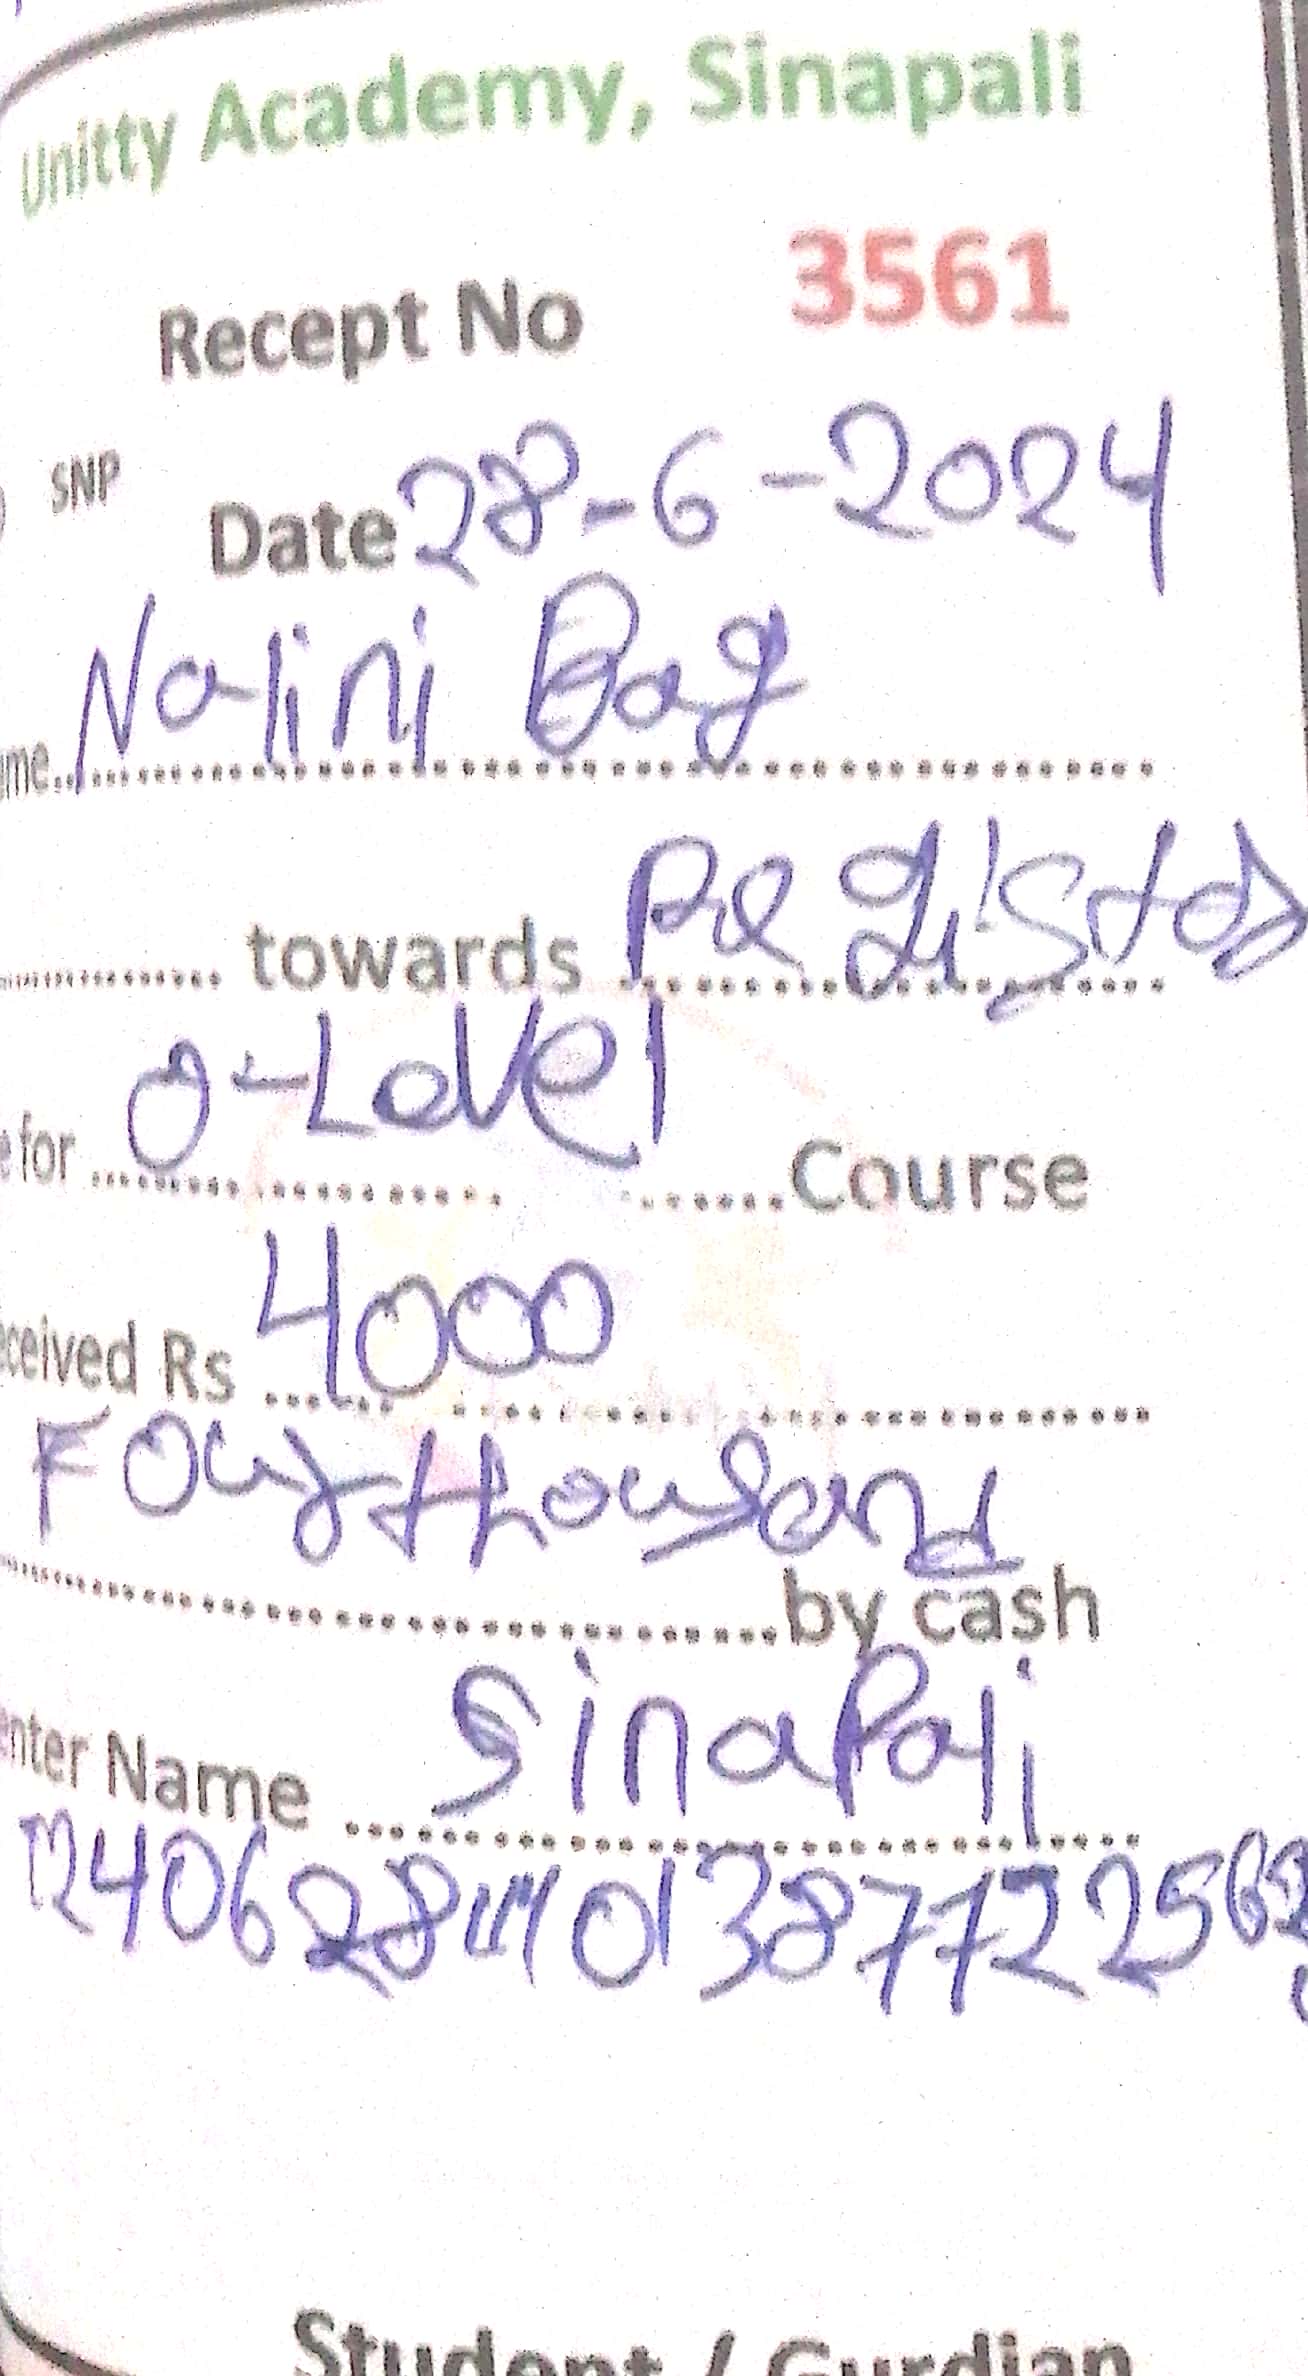 Unitty Academy, Sinapali
Recept No 3561
SNP
Date 28-6-2024
me. Nalini Bag
towards Register
e for O-Level Course
ceived Rs 4000
Four thousand
by cash
enter Name Sinapali
Student / Gurdian